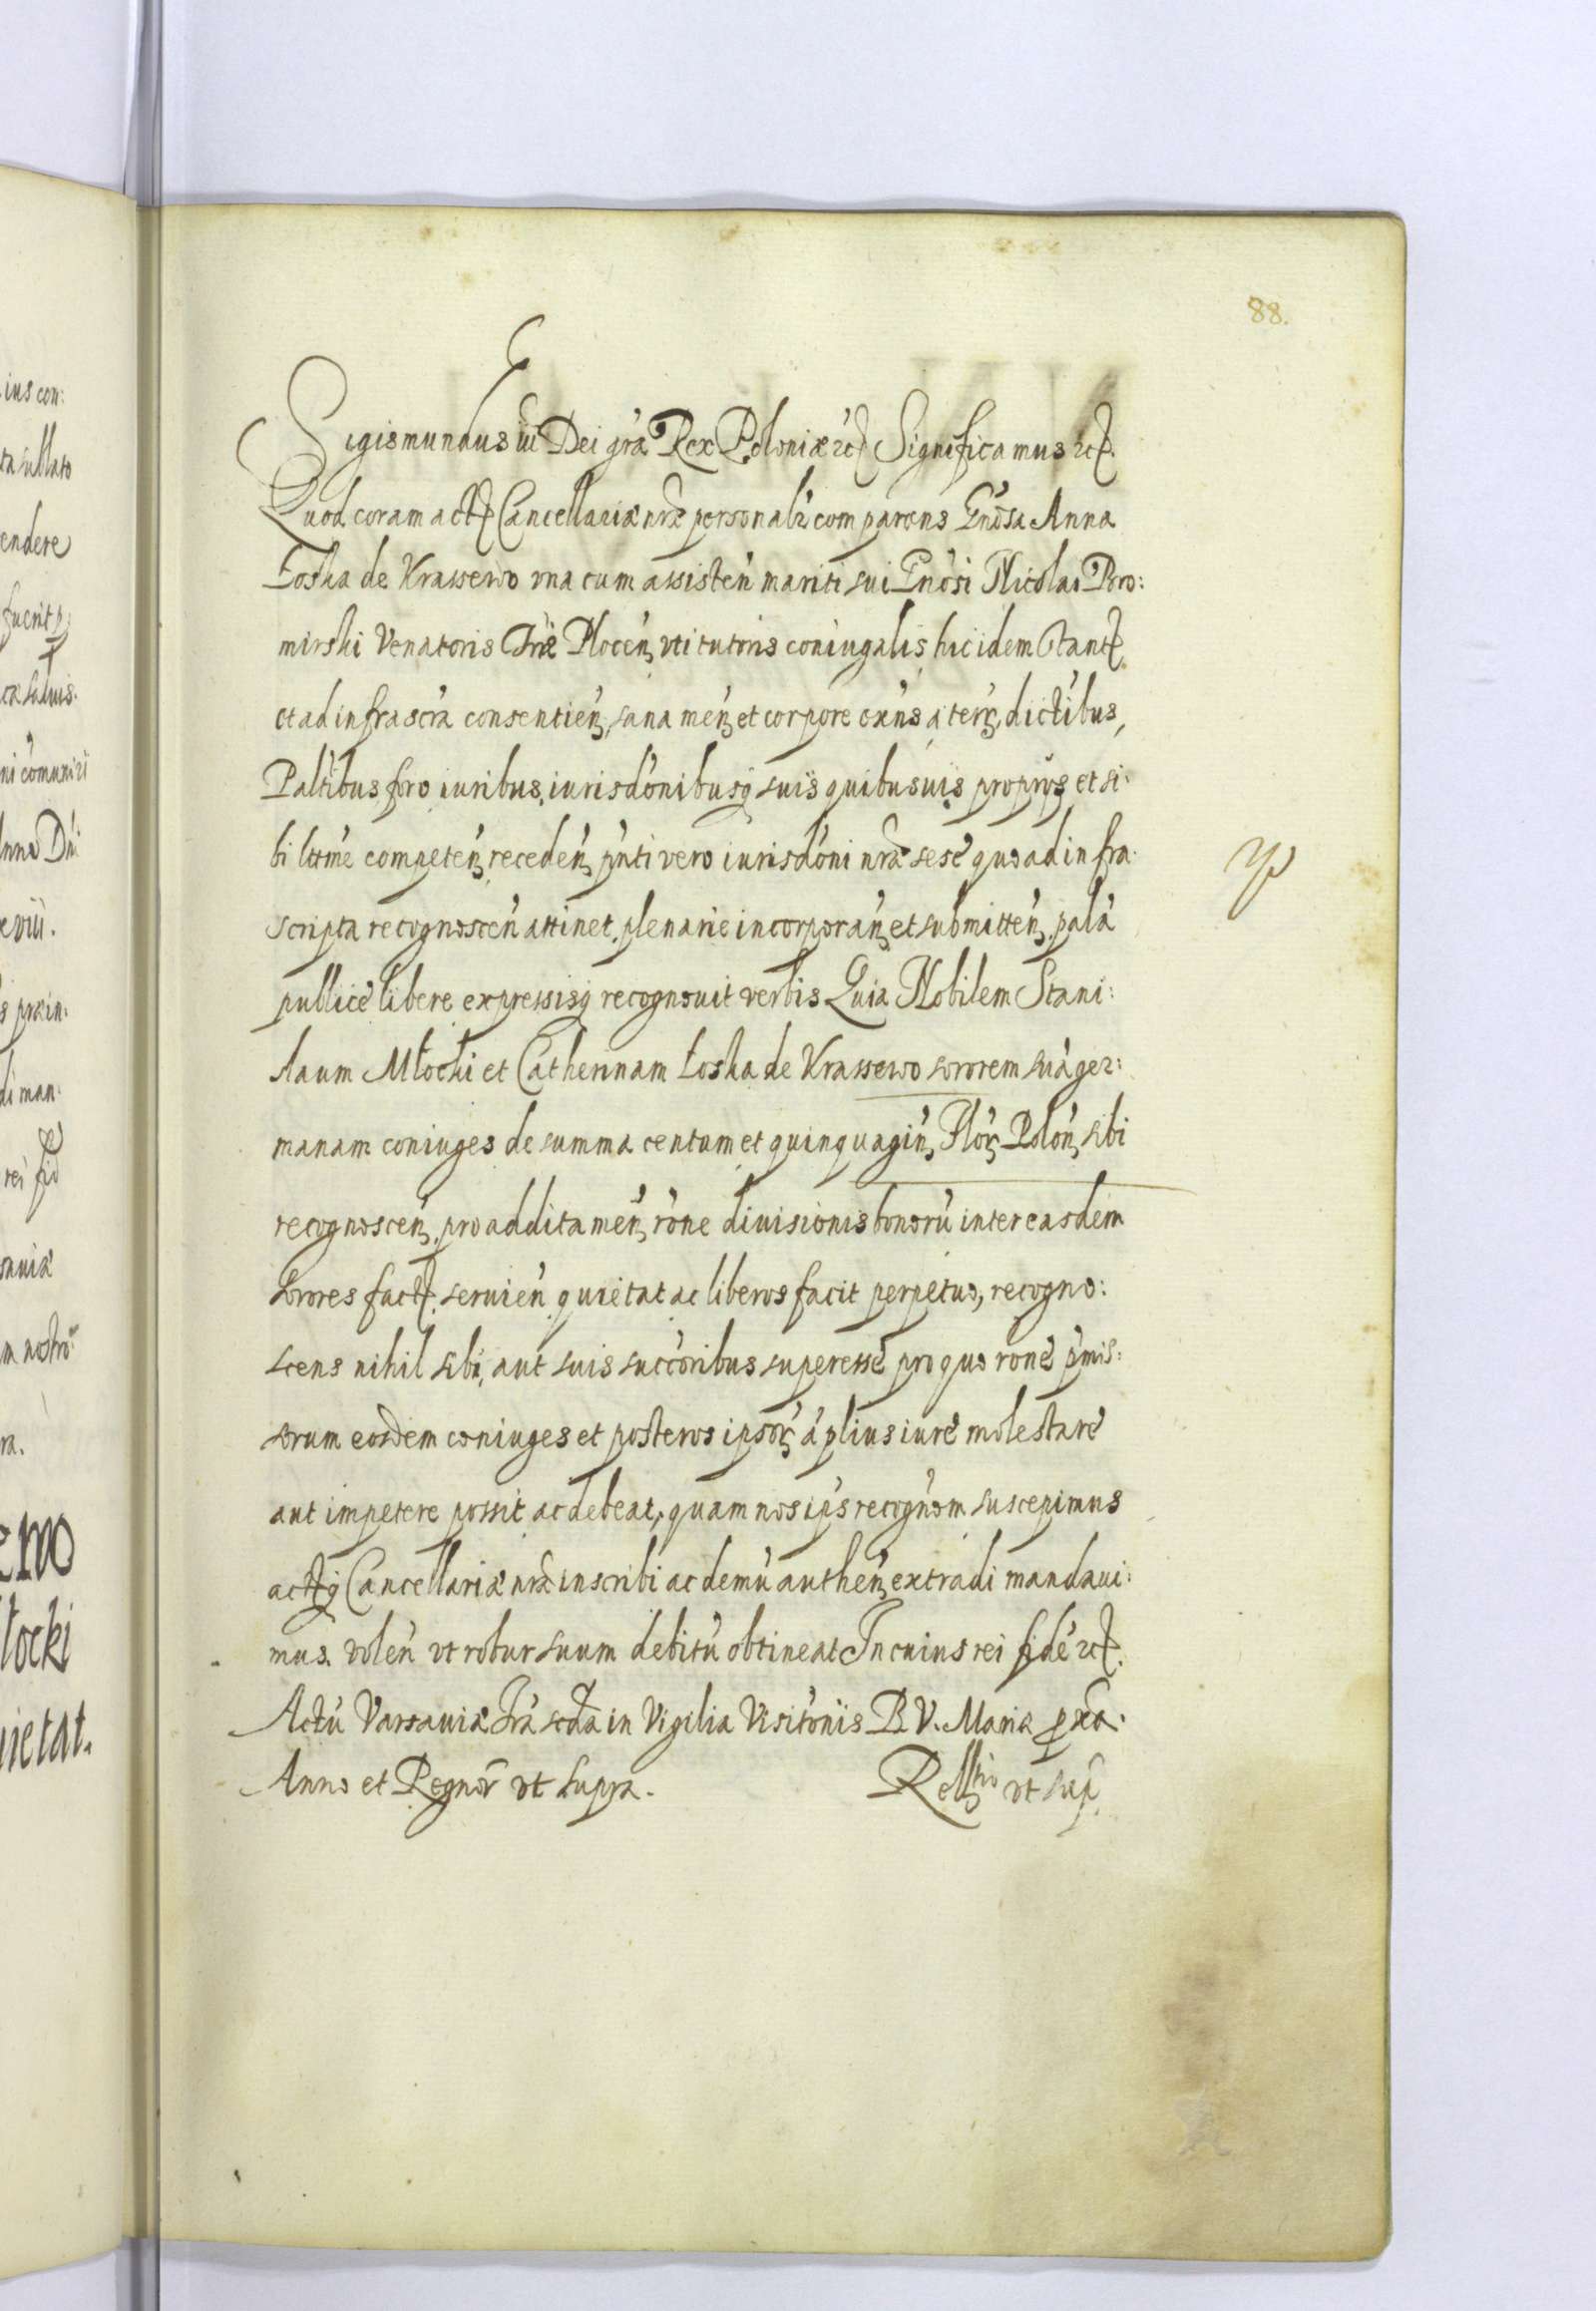 88.
Sigismundus iii Dei grã Rex Poloniæ etc Significamus etc.
Quod coram actis Cancellariæ nræ personalr comparens Gnosa Anna
Łoska de Krassewo vna cum assisten mariti sui Gnosi Nicolai Pro:
mirski Venatoris Træ Plocen vti tutoris coniugalis hic idem stantis
et ad infrascra consentien, sana men et corpore exns a terr, dictibus,
Paltibus foro iuribus, iurisdonibusq suis quibusuis proprijs et si:
bi lttme competen, receden, pnti vero iurisdoni nræ sese quoad infra:
scripta recognoscen attinet, plenarie incorporan et submitten, palã
publice libere expressisq recognouit verbis Quia Nobilem Stani:
slaum Młocki et Catherinam Łoska de Krassewo sororem suã ger:
manam coniuges de summa centum et quinquagin, Flor Polon, sibi
recognoscen, pro additamen, rone diuisionis bonorũ inter easdem
sorores factæ seruien quietat ac liberos facit perpetuo, recogno:
scens nihil sibi, aut suis succoribus superesse pro quo rone pmis:
sorum eosdem coniuges et posteros ipsor ãplius iure molestare
aut impetere possit ac debeat, quam nos ips recognom suscepimus
actisq Cancellariæ nræ inscribi ac demũ authen, extradi mandaui:
mus. volen vt robur suum debitũ obtineat In cuius rei fidẽ etc.
Actũ Varsauiæ fra scda in Vigilia Visitonis B. V. Mariæ pxa.
Anno et Regnor vt supra.
Rellio vt sup
ius con:
ta sullato
endere
fuerit
ni comuniri
xviii.
s præin:
di man:
rei fid
sauiæ
m nostro
ra.
ewo
łocki
uietat.